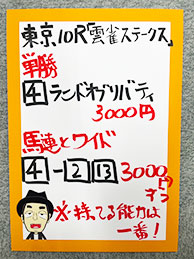 東京10R「雲雀ステークス」
単勝
4 ランドオブリバティ
3000円
馬連とワイド
4-2 13 3000円
ずつ
※持てる能力は
一番!